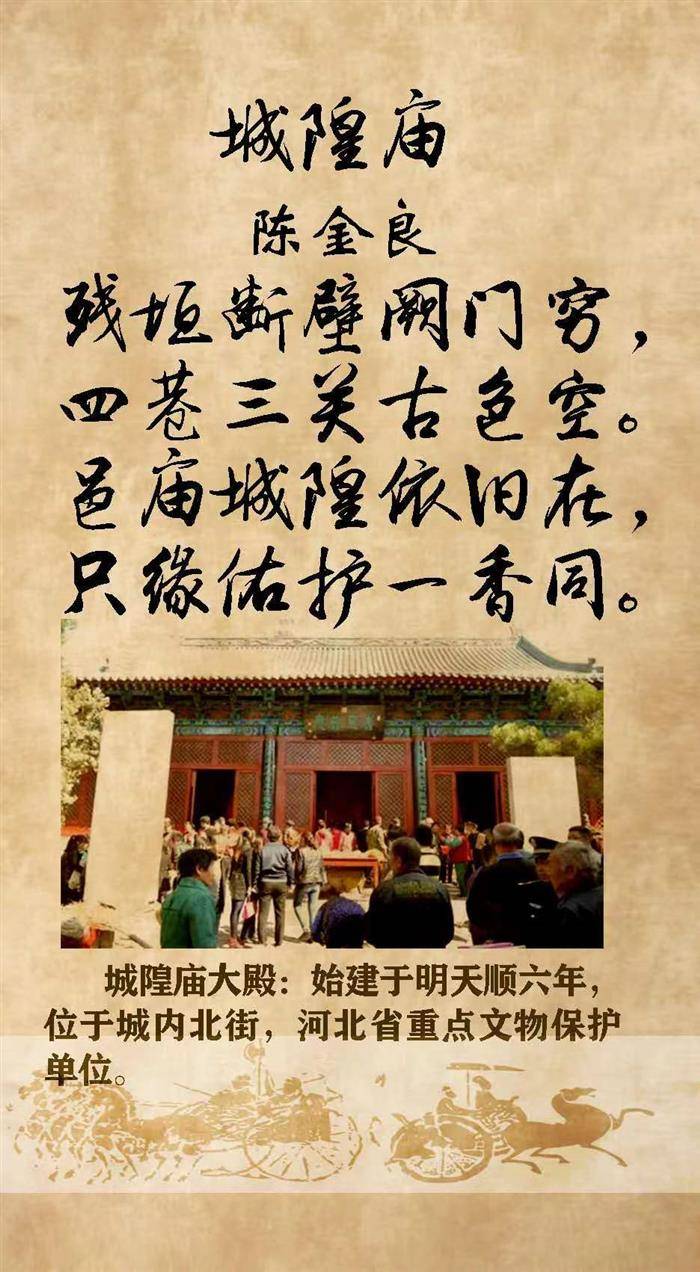 城隍庙
陈金良
残垣断壁阙门穷，
四巷三关古色空。
邑庙城隍依旧在，
只缘佑护一香同。
城隍庙大殿：始建于明天顺六年，
位于城内北街，河北省重点文物保护
单位。